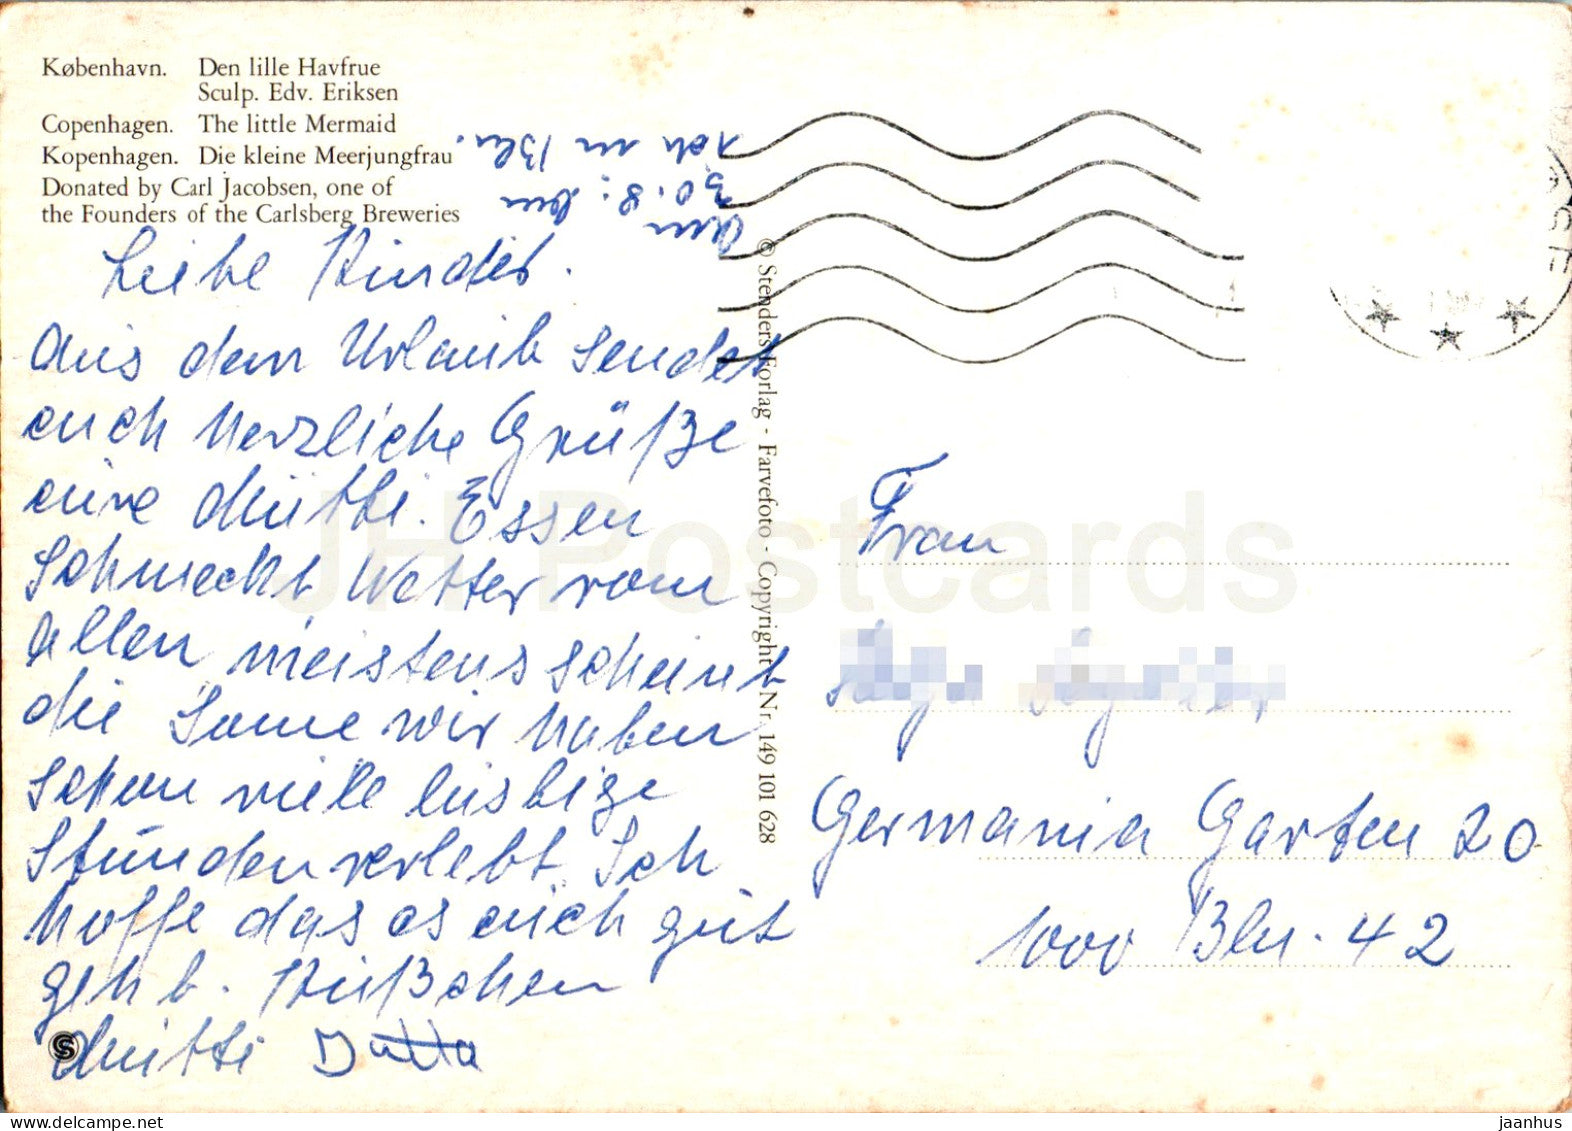 København. Den lille Havfrue
Sculp. Edv. Eriksen
Copenhagen. The little Mermaid
Kopenhagen. Die kleine Meerjungfrau
Donated by Carl Jacobsen, one of
the Founders of the Carlsberg Breweries
Am
30.8. bin
ich in Bln.
Liebe Kinder.
Aus dem Urlaub sendet
euch herzliche Grüße
eure Mutti. Essen
schmeckt Wetter vom
allen meistens scheint
die Sonne wir haben
schon viele lustige
Stunden verlebt. Ich
hoffe das es euch gut
geht. Küßchen
Mutti Jutta
© Stenders Forlag - Farvefoto - Copyright Nr. 149 101 628
Frau
Germania Garten 20
1000 Bln. 42
JH Postcards
S
jaanhus